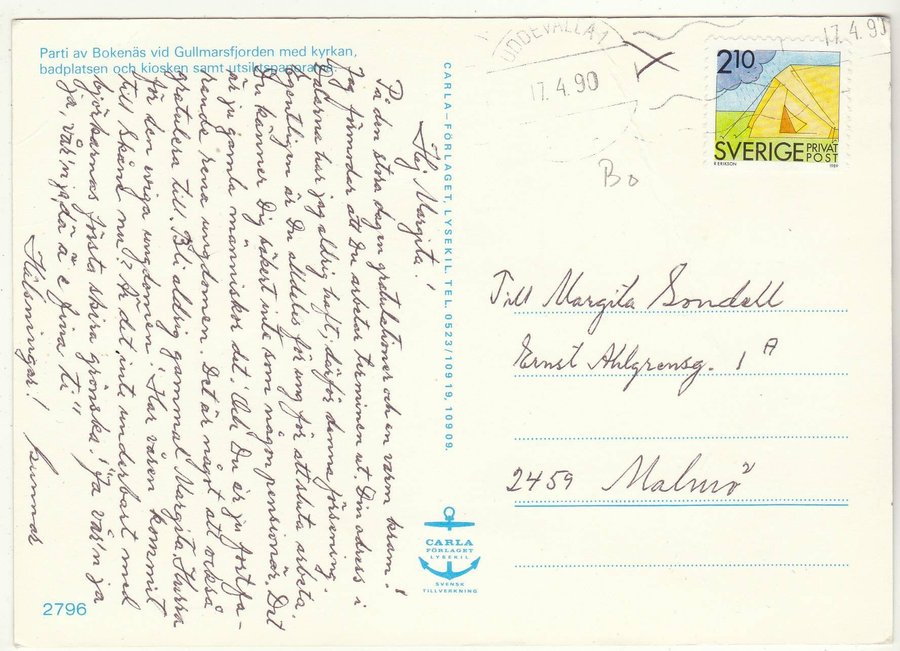 Parti av Bokenäs vid Gullmarsfjorden med kyrkan,
badplatsen och kiosken samt utsiktspanorama.
Hej Margita!
På den stora dagen gratulationer och en varm kram!
Jag förmodar att Du arbetar terminen ut. Din adress i
Dalarna har jag aldrig haft, därför denna försening.
Egentligen är Du alldeles för ung för att sluta arbeta.
Du känner Dig säkert inte som någon pensionär. Det
är ju gamla människor det! Och Du är ju fortfa-
rande rena ungdomen. Det är något att också
gratulera till. Bli aldrig gammal Margita. Hurra
för den eviga ungdomen! Har våren kommit
till Skåne nu? Är det inte underbart med
björkarnas första skira grönska! "Ja vår'n ja
ja, vår'n ja, dä ä e fina ti"
Hälsningar! Gunnar
CARLA-FÖRLAGET, LYSEKIL. TEL. 0523/109 19, 109 09.
CARLA
FÖRLAGET
LYSEKIL
SVENSK
TILLVERKNING
2796
UDDEVALLA 1
17.4.90
17.4.90
2 10
SVERIGE PRIVAT
POST
R ERIKSON 1989
Bo
Till Margita Sondell
Ernst Ahlgrensg. 1 A
2459 Malmö